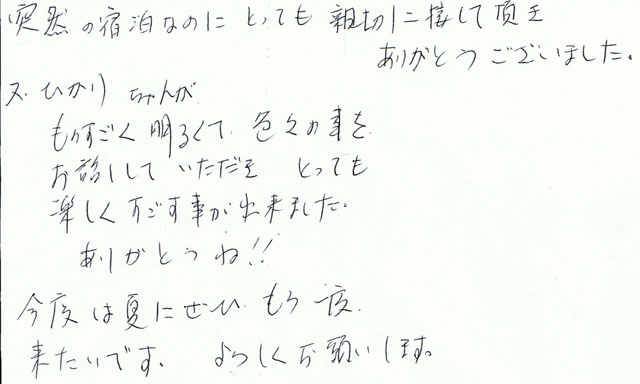 突然の宿泊なのに とっても 親切に接して頂き
ありがとうございました。
又、ひかりちゃんが
ものすごく明るくて、色々の事を
お話していただき とっても
楽しくすごす事が出来ました。
ありがとうね!!
今度は夏にぜひ もう一度
来たいです。 よろしくお願いします。